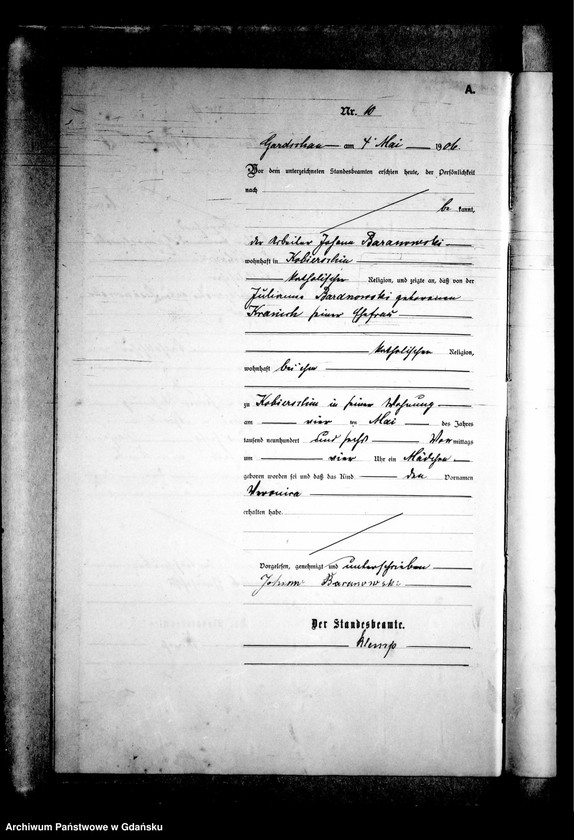 A.
Nr. 10
Gardschau am 4 Mai 1906.
Vor dem unterzeichneten Standesbeamten erschien heute, der Persönlichkeit
nach
be kannt,
der Arbeiter Johann Baranowski
wohnhaft in Kobierschin
katholischer Religion, und zeigte an, daß von der
Julianna Baranowski geborenen
seiner Ehefrau
katholischer Religion,
wohnhaft bei ihm
zu Kobierschin in seiner Wohnung
am vier ten Mai des Jahres
tausend neunhundert und sechs Vor mittags
um vier Uhr ein Mädchen
geboren worden sei und daß das Kind den Vornamen
Veronica
erhalten habe.
Vorgelesen, genehmigt und unterschrieben
Johann Baranowski
Der Standesbeamte.
Archiwum Państwowe w Gdańsku